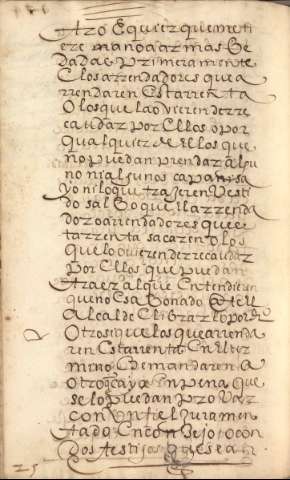 Atro E quier que meti
ere mano a armas Se
dadas primeramente
E los arrendadores que a
rrendaren Esta rrenta
O los que la ovieren de rre
caudar por Ellos o por
qualquier de Ellos que
no puedan prendar a lgu
no ni algunos capa ni sa
yo ni lo que traxeren Vesti
do salbo que El arrenda
dor o arrendadores que e
sta rrenta sacaren o los
que lo ovieren de rrecaudar
por Ellos que puedan
traer al que Entendieren
que no Esa bonado Ante El
Alcalde E librarlo por de
Otrosi que los que arrenda
ren Esta rrenta En El ter
mino E demandaren A
Otro que caya En pena que
se lo puedan provar
con Vn te El juramen
tado En con sejo to con
Dos testijos que sean
25